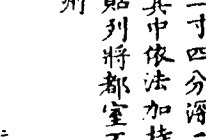 寸四分深二
其中依法加持
貼列將都室
二